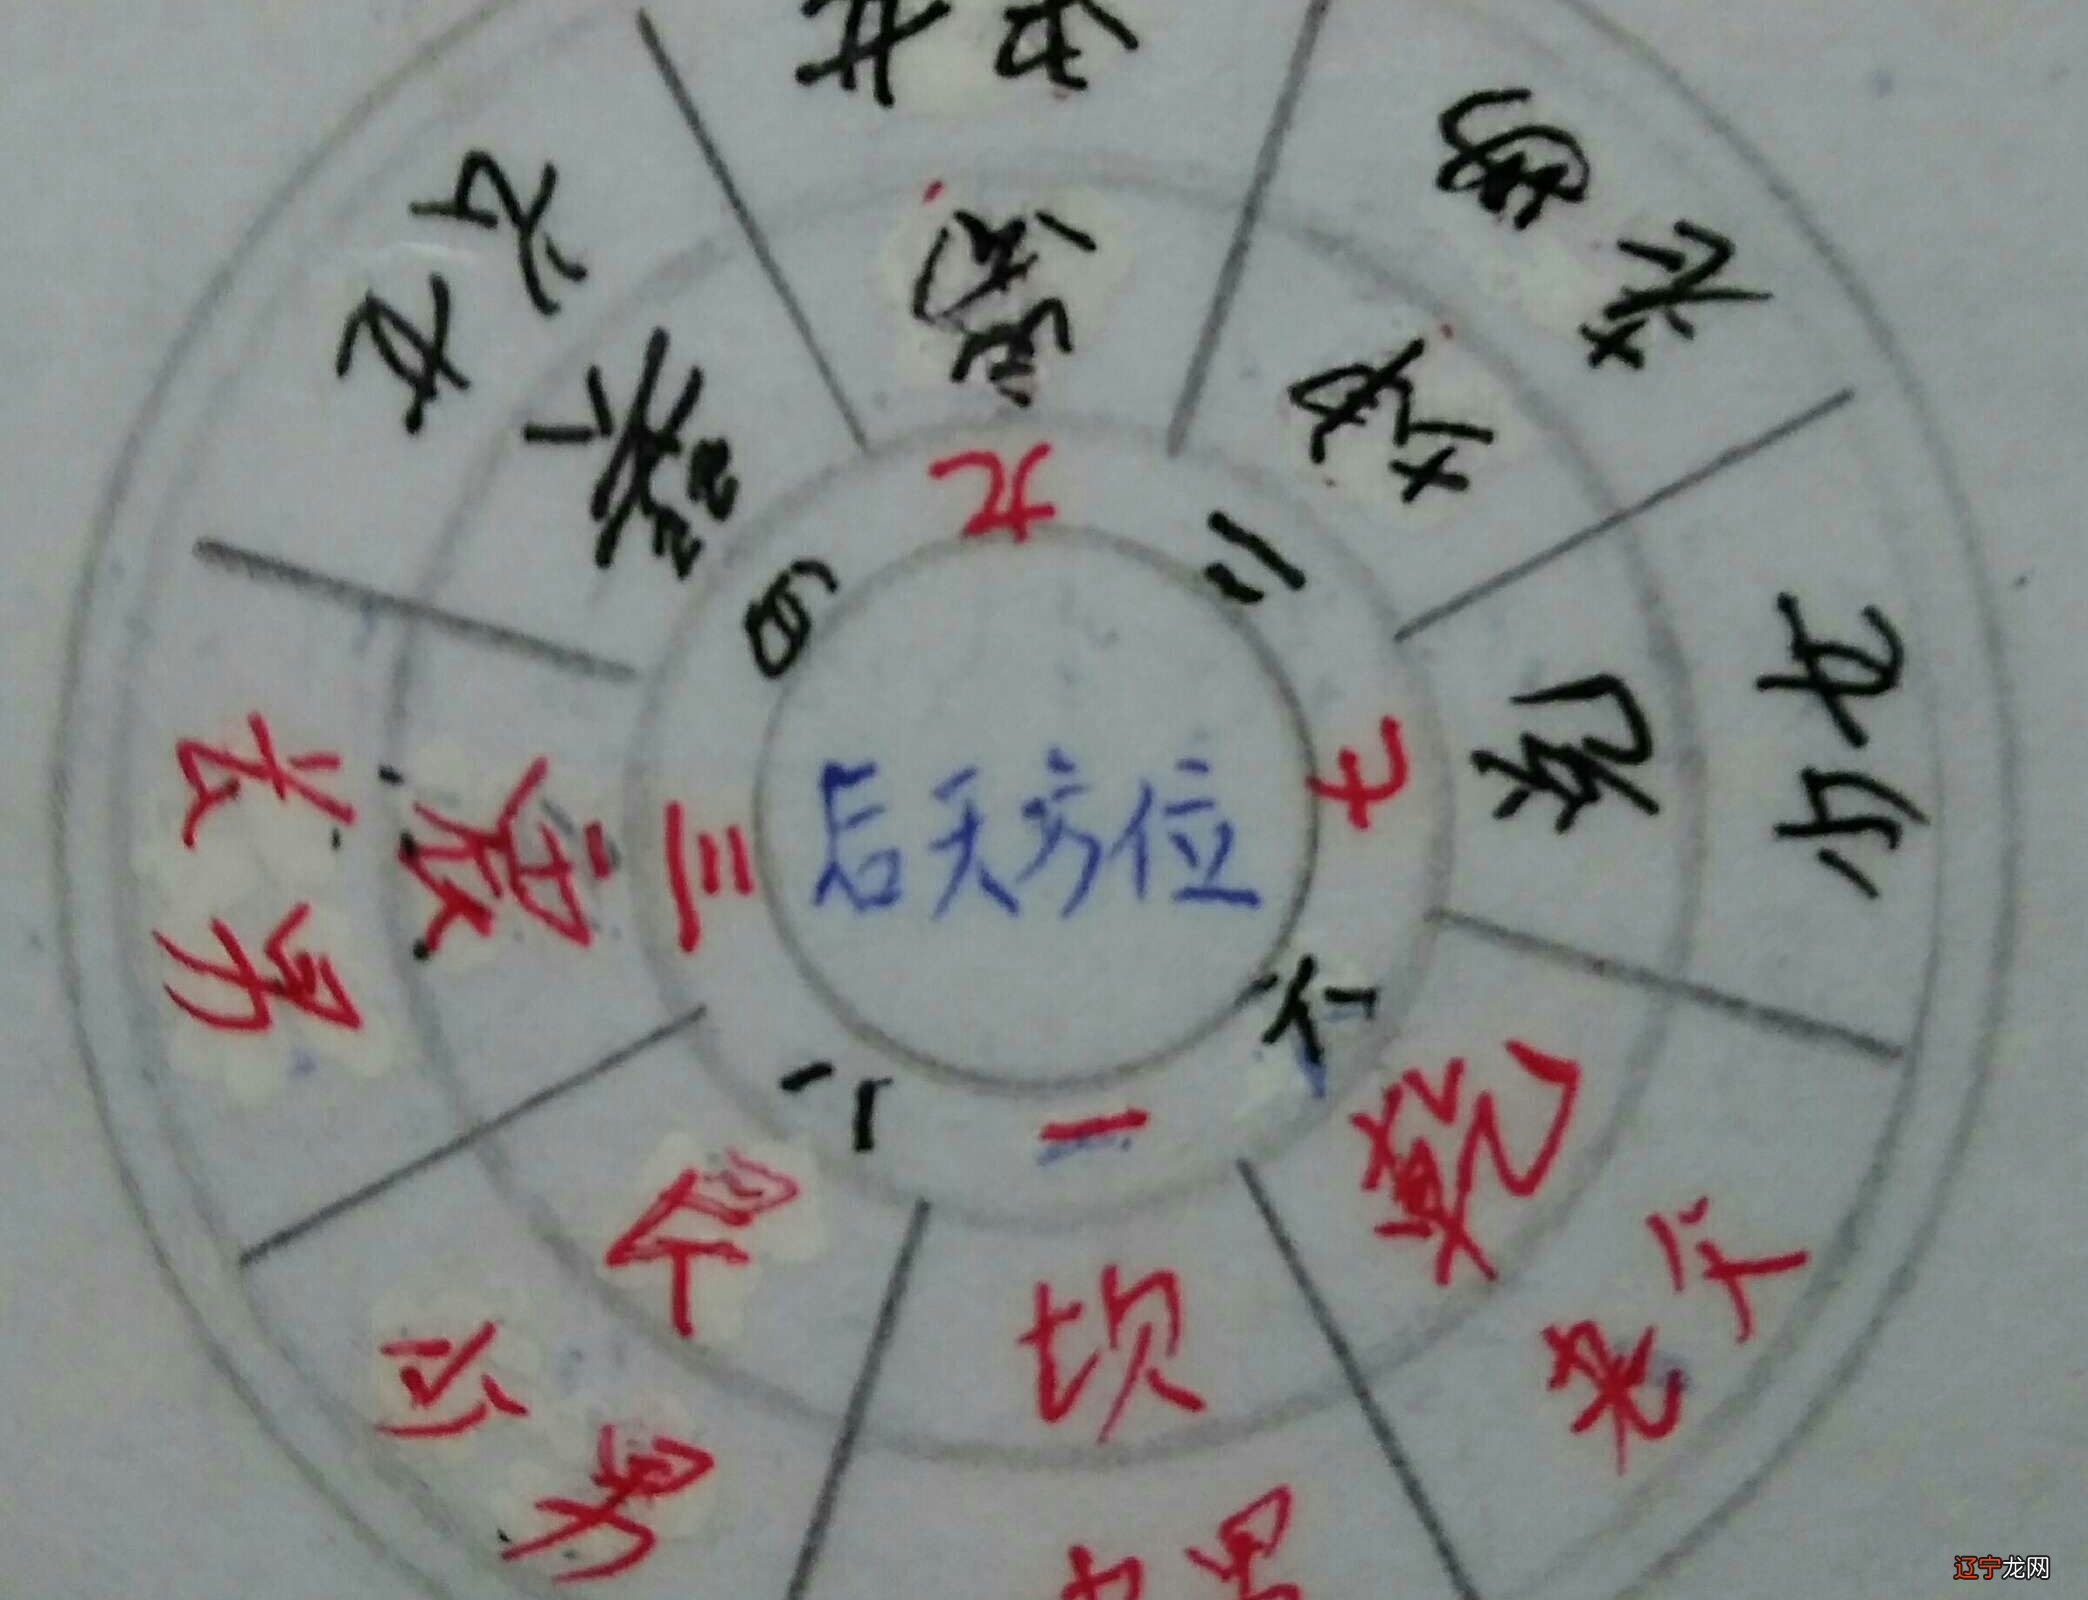 后天方位
九
二
七
六
一
八
三
四
離
坤
兑
乾
坎
艮
震
巽
中女
老
少女
老
中男
少男
长男
长女
辽宁龙网